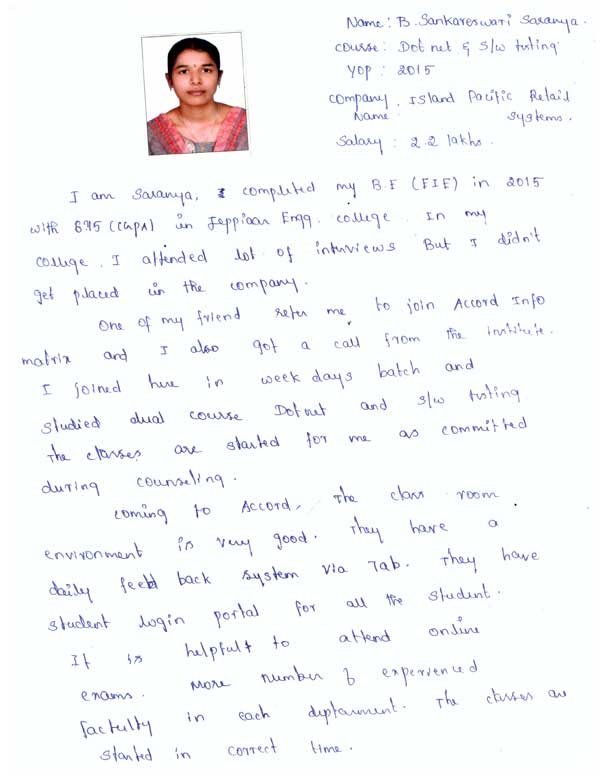 Name: B. Sankareswari Saranya.
course: Dot net & S/w testing
YOP : 2015
Company Name : Island Pacific Retail Systems.
Salary : 2.2 lakhs.
I am Saranya, I completed my B.E (EIE) in 2015
with 6.95 (CGPA) in Jeppiaar Engg. college. In my
college. I attended lot of interviews But I didn't
get placed in the company.
One of my friend refer me to join Accord Info
matrix and I also got a call from the institute.
I joined here in week days batch and
studied dual course Dotnet and S/w testing
The classes are started for me as committed
during counseling.
Coming to Accord, The class room
environment is very good. They have a
daily feed back system via Tab. They have
student login portal for all the student.
It is helpful to attend online
exams. More number of experienced
factulty in each deptarment. The classes are
started in correct time.